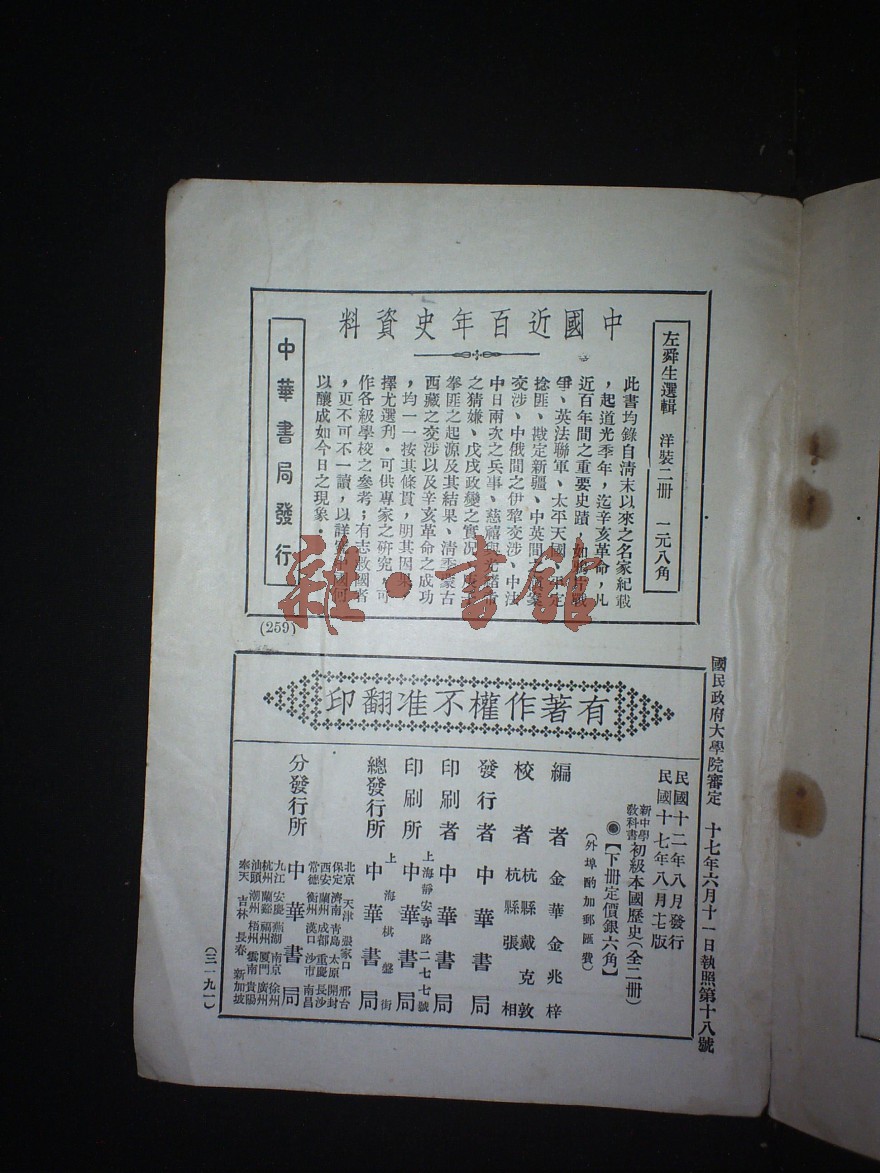 左舜生選輯 洋裝二冊 一元八角
中國近百年史資料
此書均錄自清末以來之名家紀載
，起道光季年，迄辛亥革命，凡
近百年間之重要史蹟，如鴉片戰
爭、英法聯軍、太平天國、平定
捻匪、戡定新疆、中英間之滇案
交涉、中俄間之伊犂交涉、中法
中日兩次之兵事、慈禧與光緒
之猜嫌、戊戌政變之實況、庚子
拳匪之起源及其結果、清季蒙古
西藏之交涉以及辛亥革命之成功
，均一一按其條貫，明其因果，
擇尤選刊。可供專家之研究，可
作各級學校之參考；有志救國者
，更不可不一讀，以詳究中國何
以釀成如今日之現象。
中華書局發行
(259)
國民政府大學院審定 十七年六月十一日執照第十八號
有著作權不准翻印
民國十二年八月發行
民國十七年八月七版
新中學教科書 初級本國歷史（全二冊）
【下冊定價銀六角】
（外埠酌加郵匯費）
編者 金華金兆梓
校者 杭縣戴克敦
杭縣張相
發行者 中華書局
印刷者 中華書局
上海靜安寺路二七七號
印刷所 中華書局
上海棋盤街
總發行所 中華書局
分發行所 中華書局
北京 天津 張家口 邢台
保定 濟南 青島 太原 開封
西安 蘭州 成都 重慶 長沙
常德 衡州 漢口 沙市 南昌
九江 安慶 蕪湖 南京 徐州
杭州 蘭谿 福州 厦門 廣州
汕頭 潮州 梧州 雲南 貴陽
奉天 吉林 長春 新加坡
（三一九一）
雜·書館